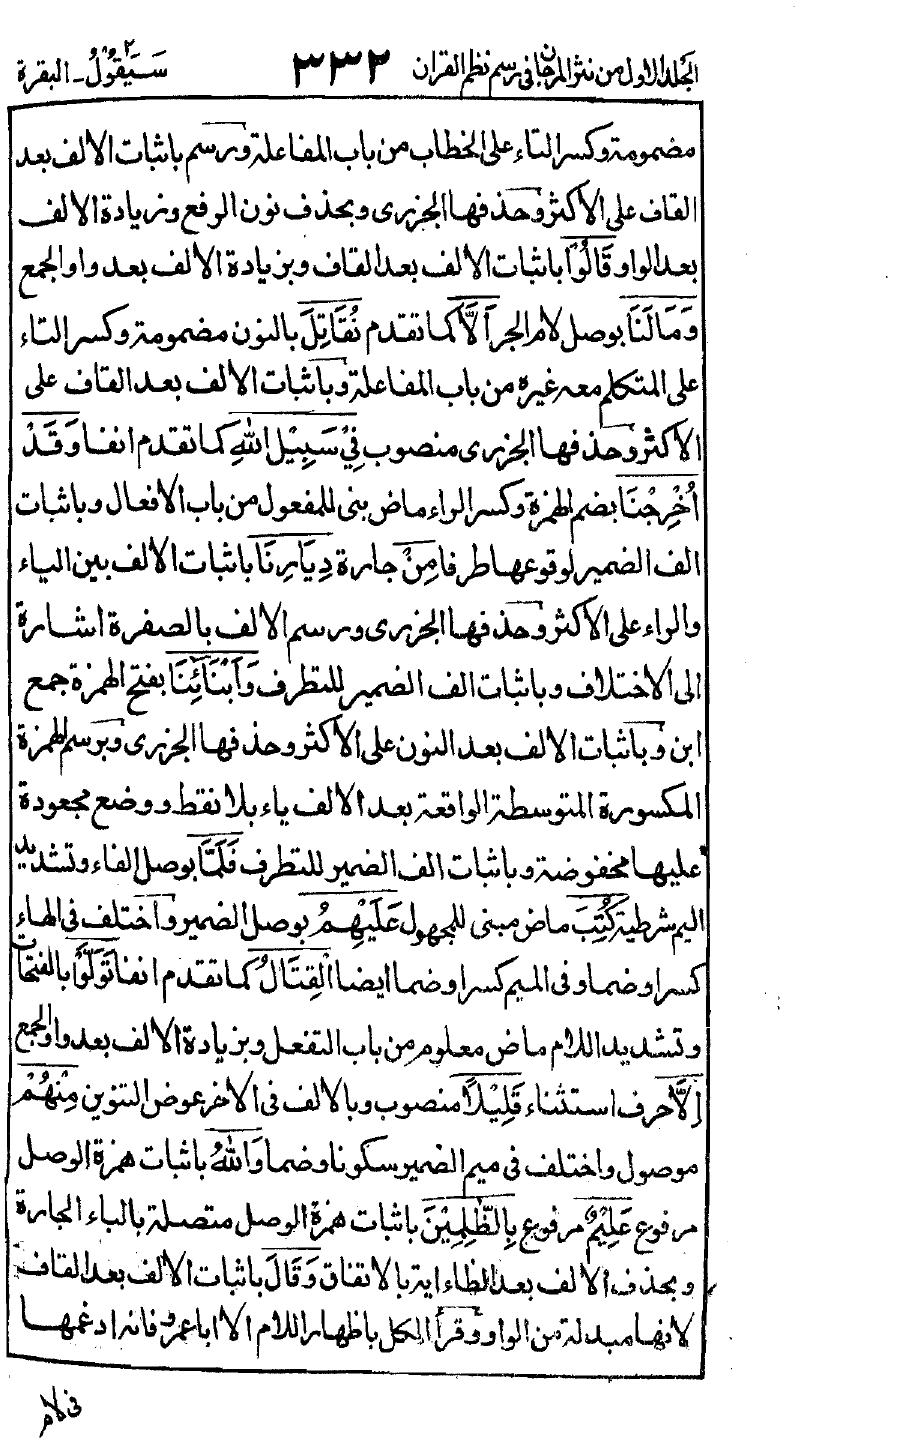 الجلد الاول من نثر المرجان في رسم نظم القران ٣٣٢ سَيَقُوْلُ ٢ - البقرة
مضمومة وكسر التاء على الخطاب من باب المفاعلة ورسم باثبات الالف بعد
القاف على الاكثر وحذفها الجزرى وبحذف نون الرفع وزيادة الالف
بعد الواو قَالُوْا باثبات الالف بعد القاف وبزيادة الالف بعد واو الجمع
وَمَا لَنَا بوصل لام الجر اَلَّا كما تقدم نُقَاتِلَ بالنون مضمومة وكسر التاء
على المتكلم معه غيره من باب المفاعلة وباثبات الالف بعد القاف على
الاكثر وحذفها الجزرى منصوب فِيْ سَبِيْلِ اللّٰهِ كما تقدم انفا وَقَدْ
اُخْرِجْنَا بضم الهمزة وكسر الراء ماض بنى للمفعول من باب الافعال وباثبات
الف الضمير لوقوعها طرفا مِنْ جارة دِيَارِنَا باثبات الالف بين الياء
والراء على الاكثر وحذفها الجزرى ورسم الالف بالصفرة اشارة
الى الاختلاف وباثبات الف الضمير للتطرف وَاَبْنَآئِنَا بفتح الهمزة جمع
ابن وباثبات الالف بعد النون على الاكثر وحذفها الجزرى وبرسم الهمزة
المكسورة المتوسطة الواقعة بعد الالف ياء بلا نقط ووضع مجعودة
عليها مخفوضة وباثبات الف الضمير للتطرف فَلَمَّا بوصل الفاء وتشديد
الميم شرطية كُتِبَ ماض مبنى للمجهول عَلَيْهِمُ بوصل الضمير واختلف فى الهاء
كسرا وضما وفى الميم كسرا وضما ايضا الْقِتَالُ كما تقدم انفا تَوَلَّوْا بالفتحات
وتشديد اللام ماض معلوم من باب التفعل وبزيادة الالف بعد واو الجمع
اِلَّا حرف استثناء قَلِيْلًا منصوب وبالالف فى الاخر عوض التنوين مِنْهُمْ
موصول واختلف فى ميم الضمير سكونا وضما وَاللّٰهُ باثبات همزة الوصل
مرفوع عَلِيْمٌ مرفوع بِالظّٰلِمِيْنَ باثبات همزة الوصل متصلة بالباء الجارة
وبحذف الالف بعد الظاء اية بالاتفاق وَقَالَ باثبات الالف بعد القاف
لانها مبدلة من الواو وقرأ الكل باظهار اللام الا ابا عمرو فانه ادغمها
فى لام